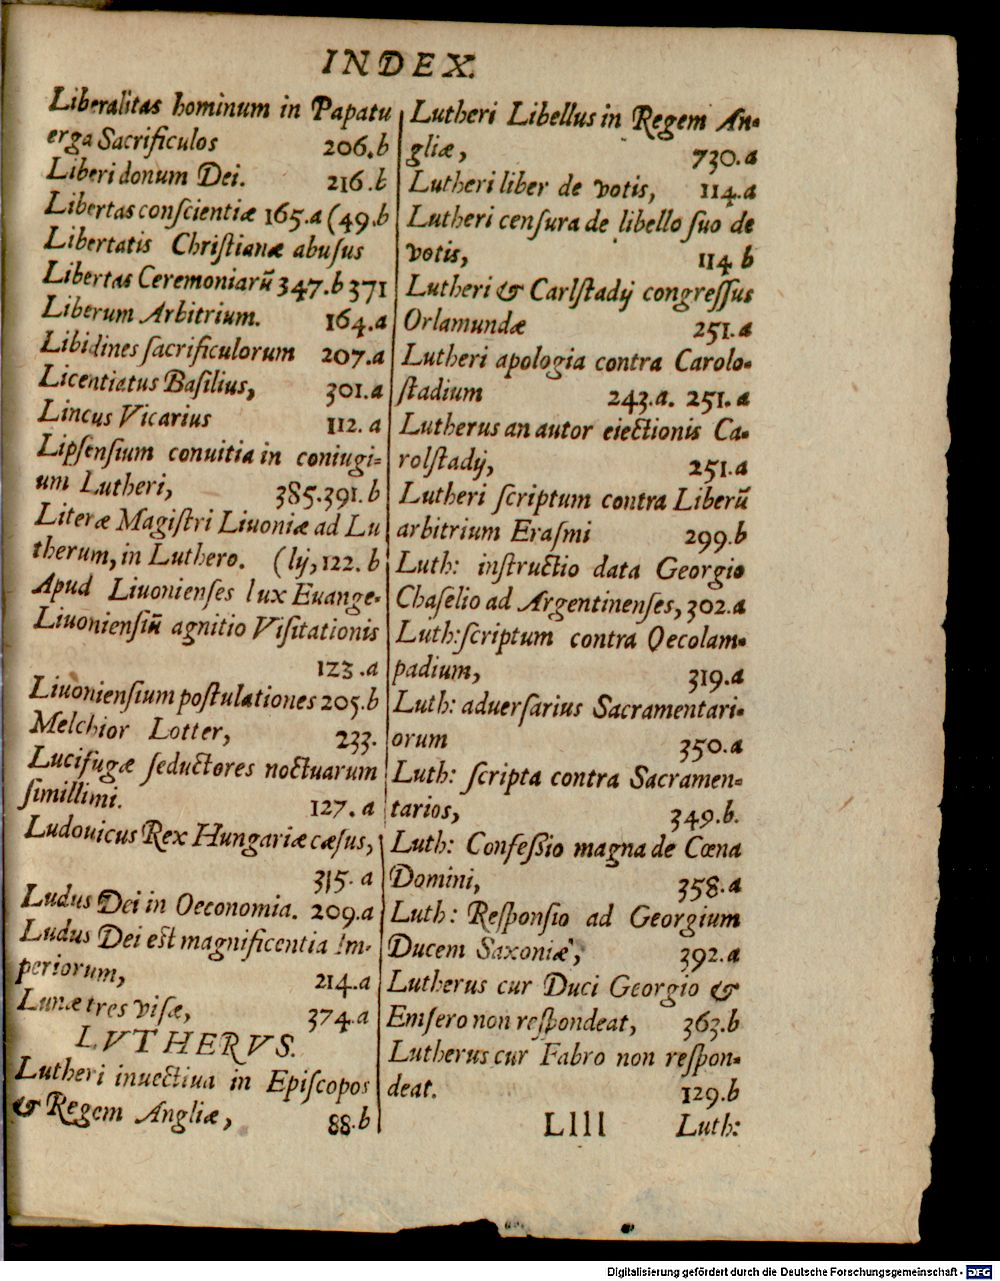 INDEX.
Liberalitas hominum in Papatu
erga Sacrificulos 206.b
Liberi donum Dei. 216.b
Libertas conſcientiæ 165.a (49.b
Libertatis Chriſtianæ abuſus
Libertas Ceremoniarū 347.b 371
Liberum Arbitrium. 164.a
Libidines ſacrificulorum 207.a
Licentiatus Baſilius, 301.a
Lincus Vicarius 112. a
Lipſenſium conuitia in coniugi-
um Lutheri, 385.391. b
Literæ Magiſtri Liuoniæ ad Lu
therum, in Luthero. (lij, 122. b
Apud Liuonienſes lux Euange-
Liuonienſiū agnitio Viſitationis
123 .a
Liuonienſium poſtulationes 205.b
Melchior Lotter, 233.
Lucifugæ ſeductores noctuarum
ſimillimi. 127. a
Ludouicus Rex Hungariæ cæſus,
315. a
Ludus Dei in Oeconomia. 209.a
Ludus Dei est magnificentia Im-
periorum, 214.a
Lunæ tres viſæ, 374.a
LVTHERVS.
Lutheri inuectiua in Epiſcopos
& Regem Angliæ, 88.b
Lutheri Libellus in Regem An-
gliæ, 730.a
Lutheri liber de votis, 114.a
Lutheri cenſura de libello ſuo de
votis, 114 b
Lutheri & Carlſtadij congreſſus
Orlamundæ 251.a
Lutheri apologia contra Carolo-
ſtadium 243.a. 251. a
Lutherus an autor eiectionis Ca-
rolſtadij, 251.a
Lutheri ſcriptum contra Liberū
arbitrium Eraſmi 299.b
Luth: inſtructio data Georgio
Chaſelio ad Argentinenſes, 302.a
Luth: ſcriptum contra Oecolam-
padium, 319.a
Luth: aduerſarius Sacramentari-
orum 350.a
Luth: ſcripta contra Sacramen-
tarios, 349.b.
Luth: Confeſſio magna de Cœna
Domini, 358.a
Luth: Reſponſio ad Georgium
Ducem Saxoniæ, 392.a
Lutherus cur Duci Georgio &
Emſero non reſpondeat, 363.b
Lutherus cur Fabro non reſpon-
deat. 129.b
Llll Luth:
Digitalisierung gefördert durch die Deutsche Forschungsgemeinschaft - DFG